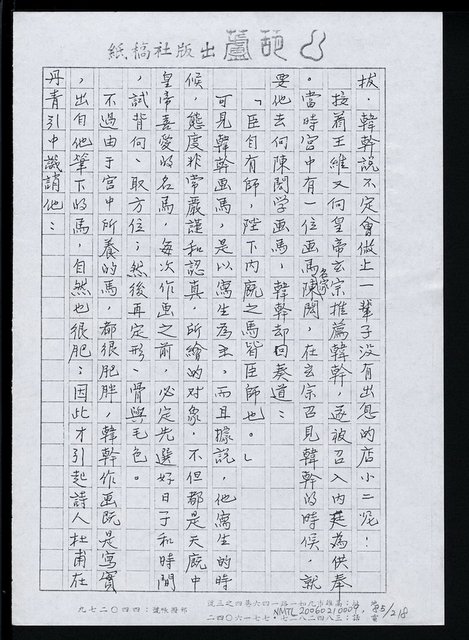 葫蘆出版社稿紙
拔,韓幹說不定會做上一輩子沒有出息的店小二呢!
接着王維又向皇帝玄宗推薦韓幹,遂被召入內廷為供奉
。當時宮中有一位画馬名家陳閎,在玄宗召見韓幹的時候,就
要他去向陳閎学画馬,韓幹却回奏道:
「臣自有師,陛下內廐之馬皆臣師也。」
可見韓幹画馬,是以寫生為主,而且據說,他寫生的時
候,態度非常嚴謹和認真,所繪的对象,不但都是天廐中
皇帝喜愛的名馬,每次作画之前,必定先選好日子和時間
,試背向、取方位;然後再定形、骨與毛色。
不過由于宮中所養的馬,都很肥胖,韓幹作画既是寫實
,出自他筆下的馬,自然也很肥;因此才引起詩人杜甫在
丹青引中譏誚他:
NMTL20060210009